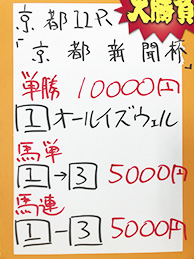 大勝負
京都11R
「京都新聞杯」
単勝 10000円
1 オールイズウェル
馬単
1→3 5000円
馬連
1-3 5000円